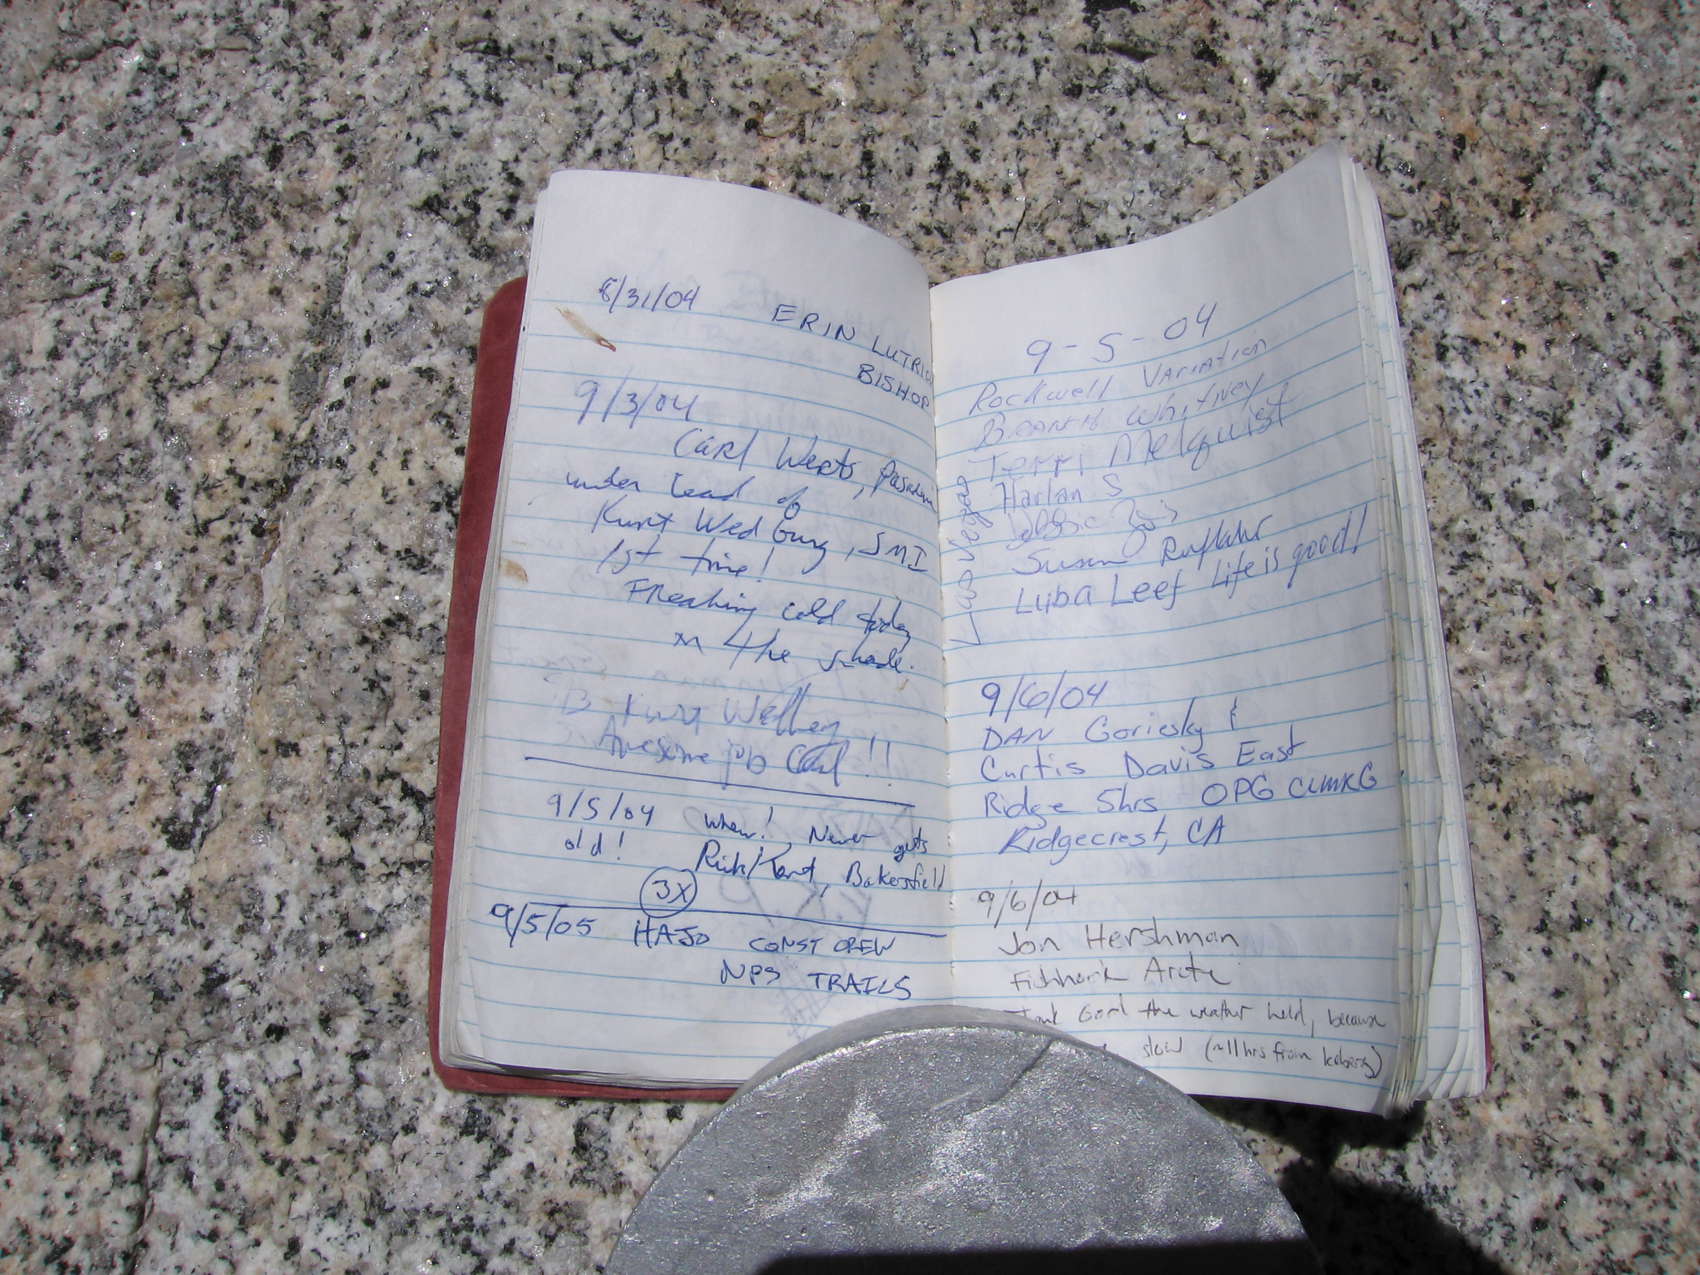 8/31/04 ERIN
BISHOP
9/3/04
Carl Werts, Pasadena
under lead of
Kurt Wedburg, SMI
1st time!
Freaking cold today
in the shade.
Kurt
Awesome job Carl!!
9/5/04 whew! Never gets
old!
Rick/ , Bakersfield
3X
9/5/05 HAJO CONST CREW
NPS TRAILS
9-5-04
Rockwell Variation
Whitney
Terri Melquist
Harlan S
Susan
Luba Leef Life is good!
Las Vegas
9/6/04
DAN Goriesky &
Curtis Davis East
Ridge 5hrs OPG CLMRG
Ridgecrest, CA
9/6/04
Jon Hershman
Fishhook Arete
God the weather held, because
slow (~11 hrs from Iceberg)